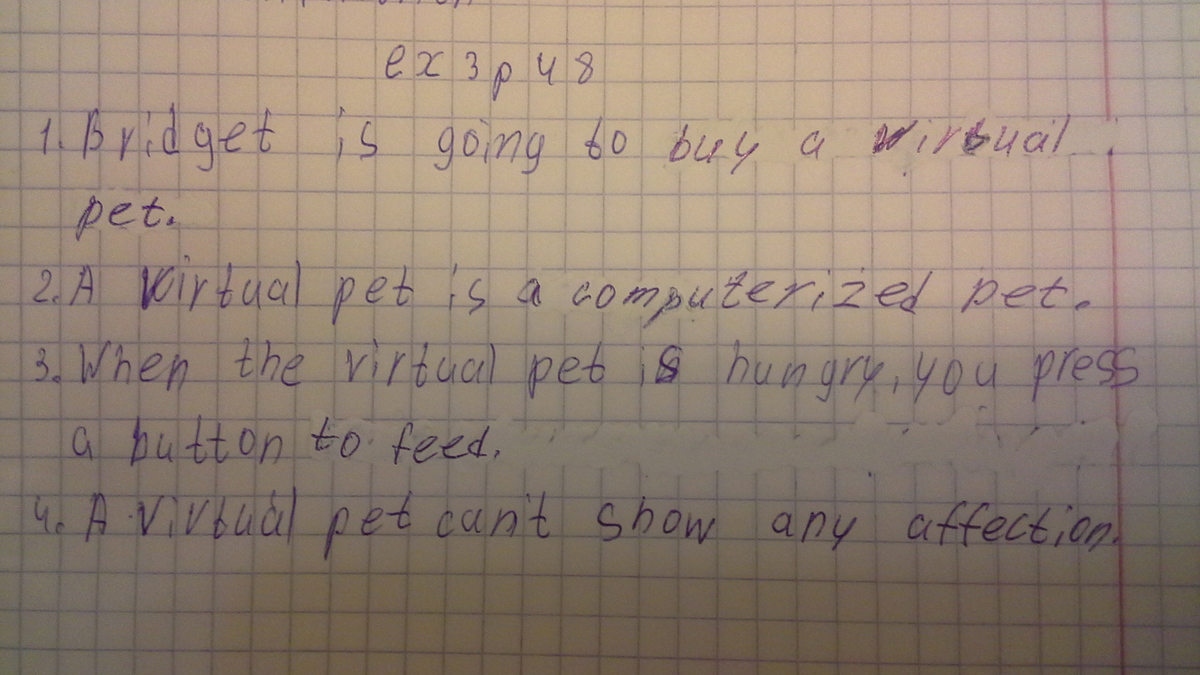 ex 3 p 48
1. Bridget is going to buy a virtual
pet.
2. A virtual pet is a computerized pet.
3. When the virtual pet is hungry, you press
a button to feed.
4. A virtual pet can't show any affection.